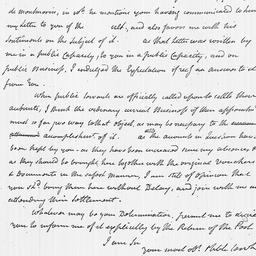 de montmorin, in wch he mentions your having communicated to him
my letter to you of the ult, and also favor me with his
Sentiments on the Subject of it. as that letter was written by
me in a public Capacity, to you in a public Capacity, and on
public Business, I indulged the Expectation of an answer to it
from you.
When public Servants are officially called upon to settle their
accounts, I think the ordinary current Business of their appointmts
must so far give way to that object, as may be necessary to the
accomplishment of it. as the accounts in Question have
been kept by you - as they have been increased since my absence, &
as they should be brought here together with the original vouchers
& Documents in the safest manner, I am still of opinion that
you shd bring them here without Delay, and join with me in
attending their Settlement.
Whatever may be your Determination, permit me to request
you to inform me of it explicitly by the Return of the Post
I am Sir
your most obt &